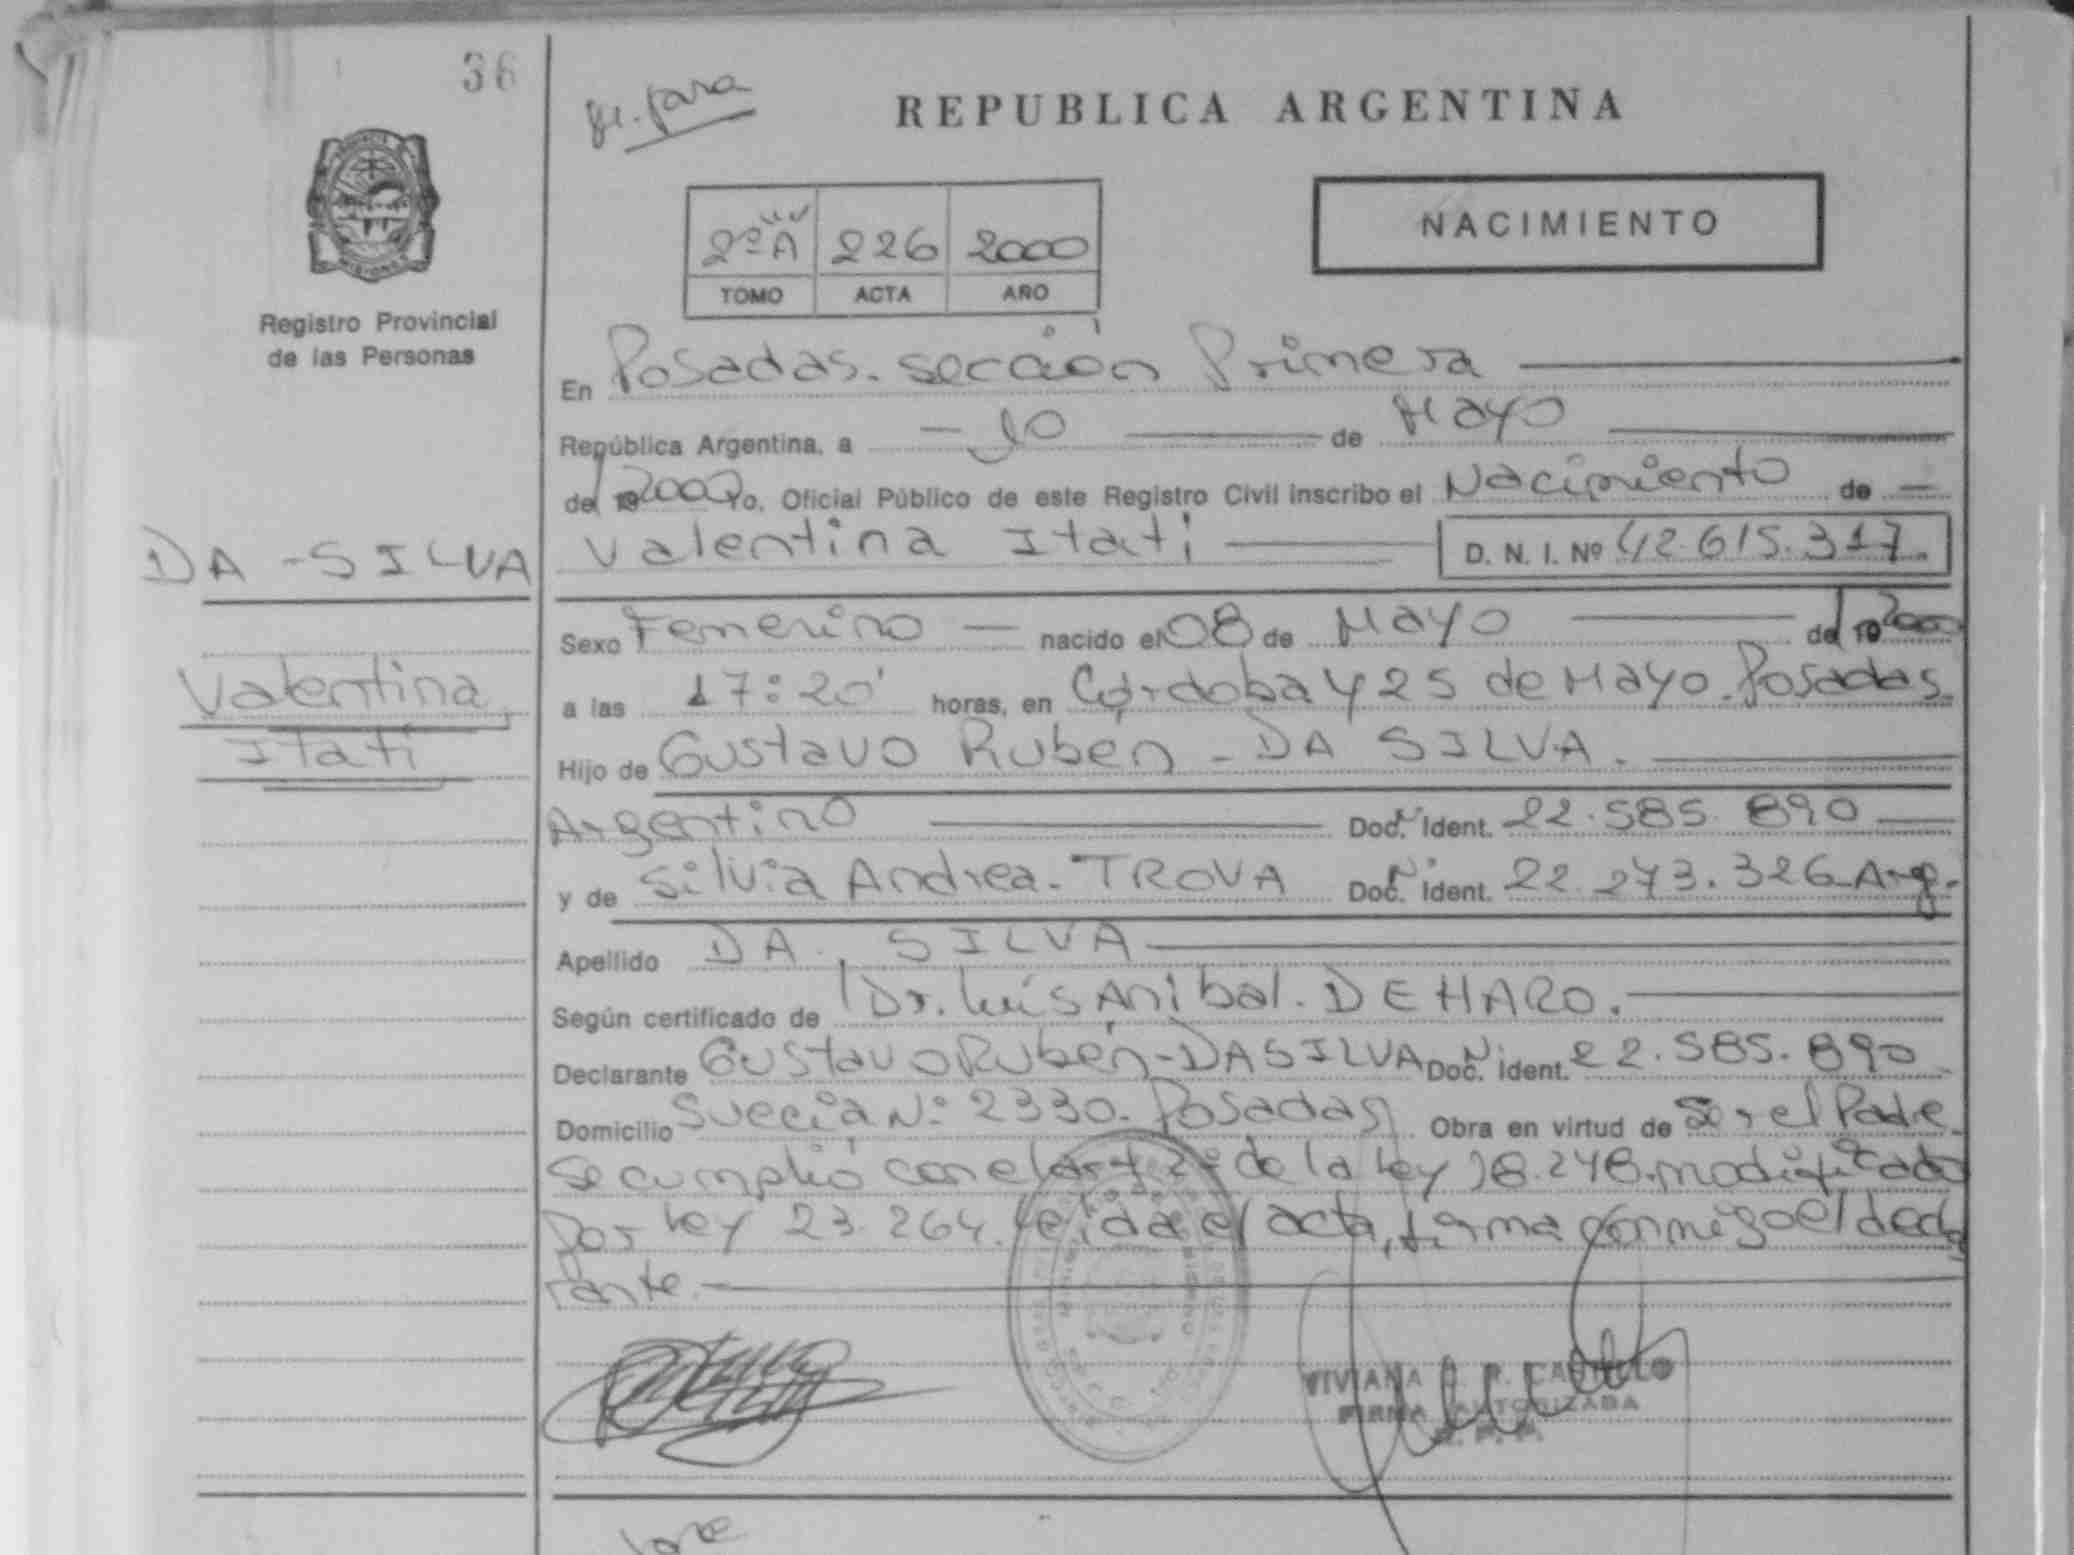 36
REPUBLICA ARGENTINA
NACIMIENTO
2ºA 226 2000
TOMO ACTA AÑO
Registro Provincial
de las Personas
En Posadas. sección Primera
República Argentina, a - 10 de Mayo
del 2000 Yo, Oficial Público de este Registro Civil inscribo el Nacimiento de
DA - SILVA
Valentina Itati D. N. I. Nº 42.615.317.
Sexo Femenino nacido el 08 de Mayo del 2000
Valentina,
Itatí
a las 17:20' horas, en Córdoba y 25 de Mayo. Posadas.
Hijo de Gustavo Rubén - DA SILVA.
Argentino Doc. Ident. 22.585.890
y de Silvia Andrea. TROVA Doc. Ident. 22.273.326 Arg.
Apellido DA SILVA
Según certificado de Dr. Luís Anibal. DE HARO.
Declarante Gustavo Rubén - DA SILVA Doc. Ident. 22.585.890
Domicilio Suecia Nº 2330. Posadas Obra en virtud de Ser el Padre
Se cumplió con el art 2º de la Ley 18.248. modificado
por Ley 23.264. leída el acta, firma conmigo el decla
rante.
VIVIANA R. CASTILLO
FIRMA AUTORIZADA
R. P. P.